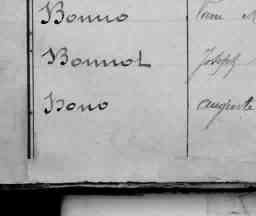 Bonno
Bonnot Joseph
Bono auguste